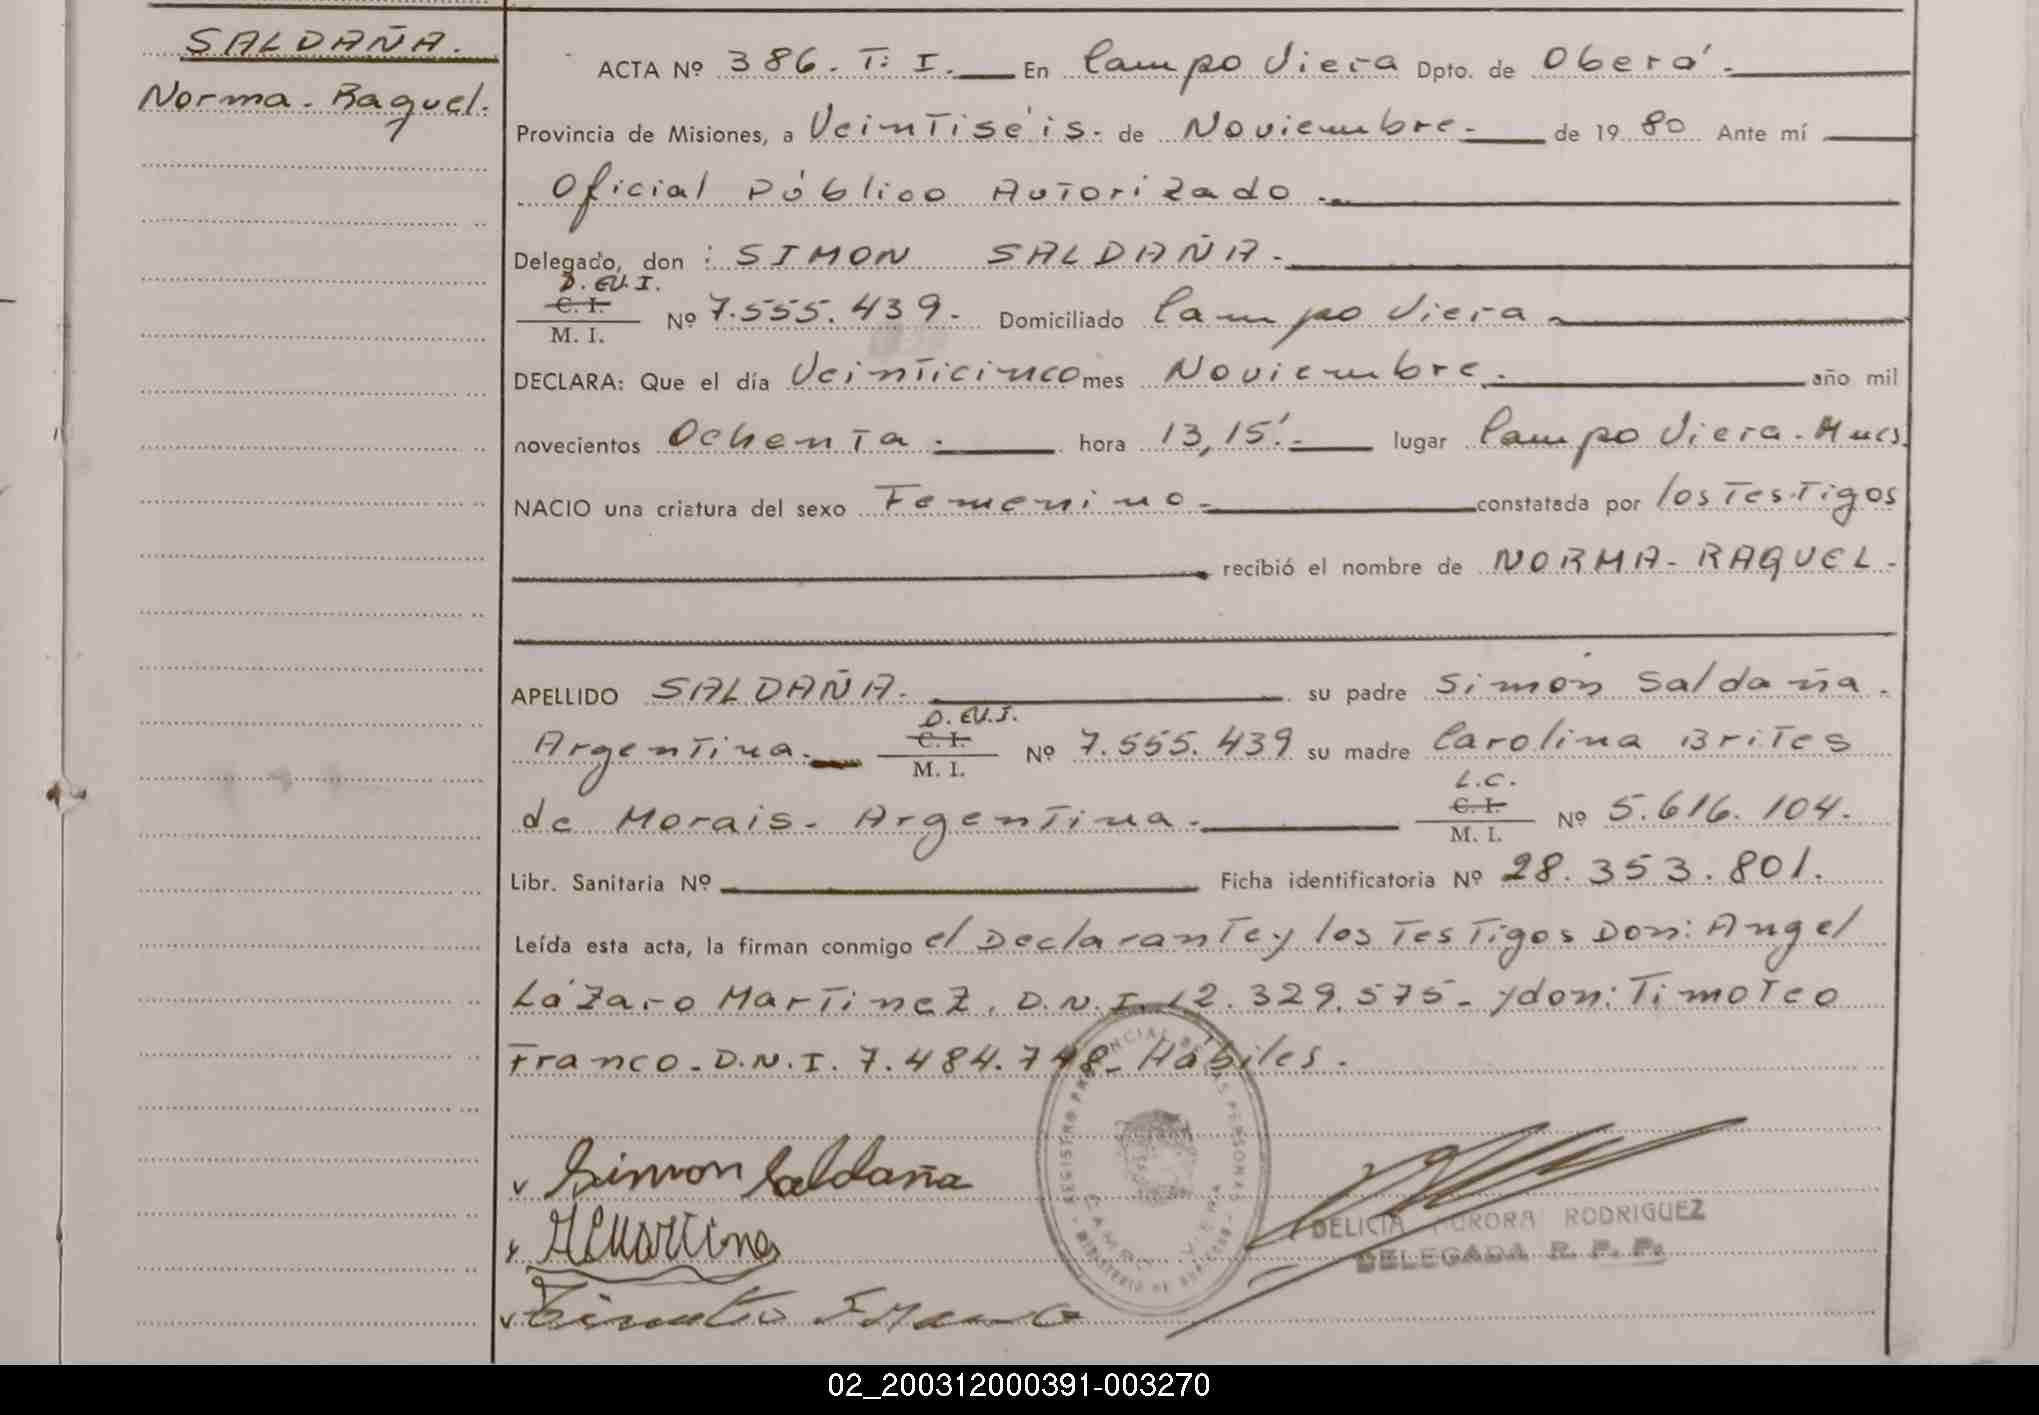 SALDAÑA.
Norma - Raquel.
ACTA Nº 386 - T: I. En Campo Viera Dpto. de Oberá -
Provincia de Misiones, a Veintiséis - de Noviembre - de 19 80 Ante mí
Oficial Público Autorizado -
Delegado, don : SIMON SALDAÑA -
D. EU. I.
C. I.
M. I.
Nº 7.555.439 - Domiciliado Campo Viera -
DECLARA: Que el día Veinticinco mes Noviembre. año mil
novecientos Ochenta - hora 13,15' - lugar Campo Viera - Mnes
NACIO una criatura del sexo Femenino - constatada por los Testigos
recibió el nombre de NORMA - RAQUEL -
APELLIDO SALDAÑA. su padre Simón Saldaña -
D. EU. I.
Argentina. C. I. Nº 7.555.439 su madre Carolina Brites
M. I.
L.C.
de Morais - Argentina - C. I. Nº 5.616.104.
M. I.
Libr. Sanitaria Nº Ficha identificatoria Nº 28.353.801.
Leída esta acta, la firman conmigo el Declarante y los Testigos Don: Angel
Lázaro Martinez, D.N.I. 12.329.575 - y don: Timoteo
Franco - D.N.I. 7.484.748 - Hábiles -
Simon Saldaña
Timoteo Franco
REGISTRO PROVINCIAL DE LAS PERSONAS
CAMPO VIERA
MINISTERIO DE GOBIERNO
DELICIA AURORA RODRIGUEZ
DELEGADA R. P. P.
02_200312000391-003270